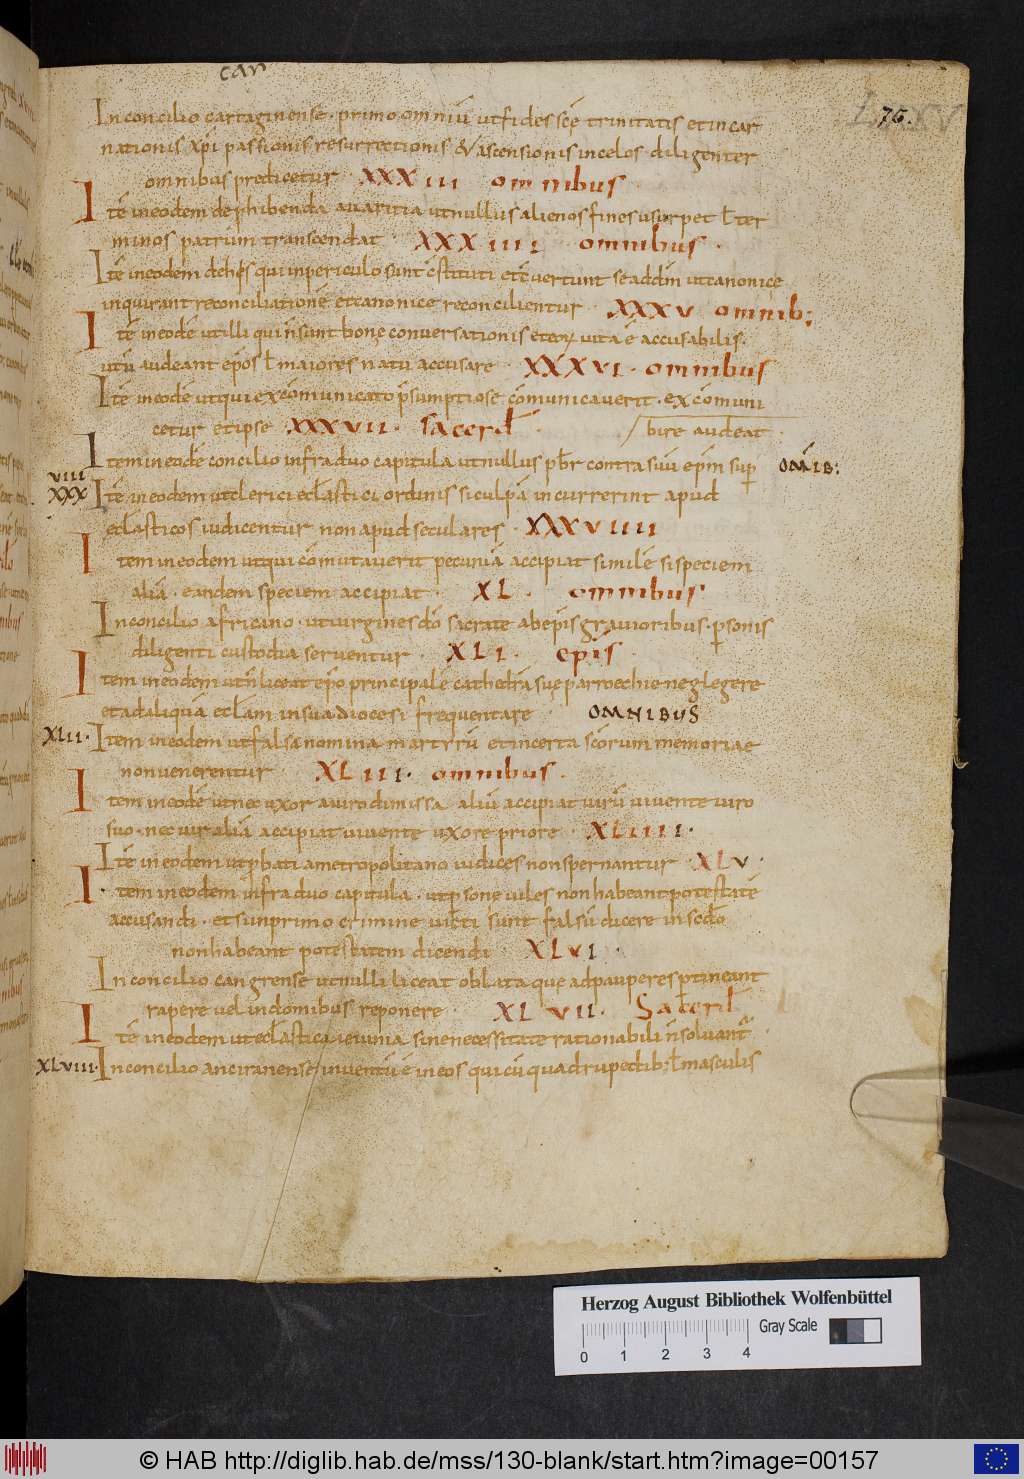 can
75.
In concilio cartaginense · primo omniū ut fides scē trinitatis et incar
nationis xp̄i passionis resurrectionis & ascensionis in celos diligenter
omnibus predicetur · XXXIII omnibus
Itē in eodem de phibenda avaritia ut nullus alienos fines usurpet ł ter
minos patrum transcendat · XXXIIII omnibus ·
Itē in eodem de qui in periculo sunt cstituti et cvertunt se ad dm̄ ut canonice
inquirant reconciliationē et canonice reconcilientur · XXXV omnib;
Itē in eodē ut illi qui n̄ sunt bone conversationis et eoꝝ vita ē accusabilis.
ut ū audeant ep̄os ł maiores natu accusare · XXXVI · omnibus
Itē in eodē ut qui excōmunicato p̄sumptiose cōmunicaverit · excōmuni
cetur et ipse XXXVII · sacerd̄ · / bire audeat ·
Item in eodē concilio infra duo capitula ut nullus pb̄r contra suū ep̄m sup̱ OMIB:
VIII
XXX Itē in eodem ut clerici ecl̄astici ordinis si culpā incurrerint apud
ecl̄asticos iudicentur non apud seculares · XXXVIIII
Item in eodem ut qui cōmutaverit pecuniā accipiat similē si speciem
aliā · eandem speciem accipiat · XL · omnibus
In concilio africano · ut virgines dō sacrate ab ep̄is gravioribus · p̱sonis
diligenti custodia serventur · XLI · ep̄is ·
Item in eodem ut n̄ liceat ep̄o principalē cathedrā sue parroechie neglegere
et ad aliquā ecl̄am in sua diocesi frequentare · OMNIBUS
XLII · Item in eodem ut falsa nomina martyrū et incerta scōrum memoriae
non venerentur XLIII · omnibus ·
Item in eodē ut nec uxor a viro dimissa aliū accipiat virū vivente viro
suo · nec vir aliā accipiat vivente uxore priore · XLIIII ·
Itē in eodem ut p̱bati a metropolitano iudices non spernantur · XLV ·
Item in eodem infra duo capitula · ut p̱sone viles non habeant potestatē
accusandi · et si in primo crimine victi sunt falsū dicere in scd̄o
non habeant potestatem dicendi XLVI ·
In concilio cangrense ut nulli liceat oblata que ad pauperes p̱tineant
rapere vel in domibus reponere · XLVII · Sacerd̄
Itē in eodem ut ecl̄astica ieiunia sine necessitate rationabili n̄ solvant̄ ·
XLVIII · In concilio anciranense inventū ē in eos qui cū quadrupedib; ł masculis
Herzog August Bibliothek Wolfenbüttel
Gray Scale
0 1 2 3 4
© HAB http://diglib.hab.de/mss/130-blank/start.htm?image=00157